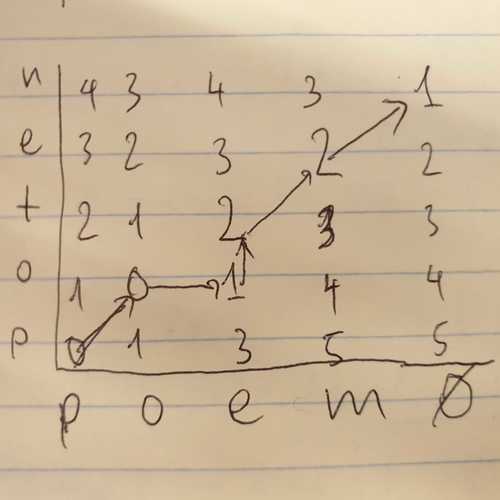 n 4 3 4 3 1
e 3 2 3 2 2
t 2 1 2 3 3
o 1 0 1 4 4
p 0 1 3 5 5
p o e m Ø